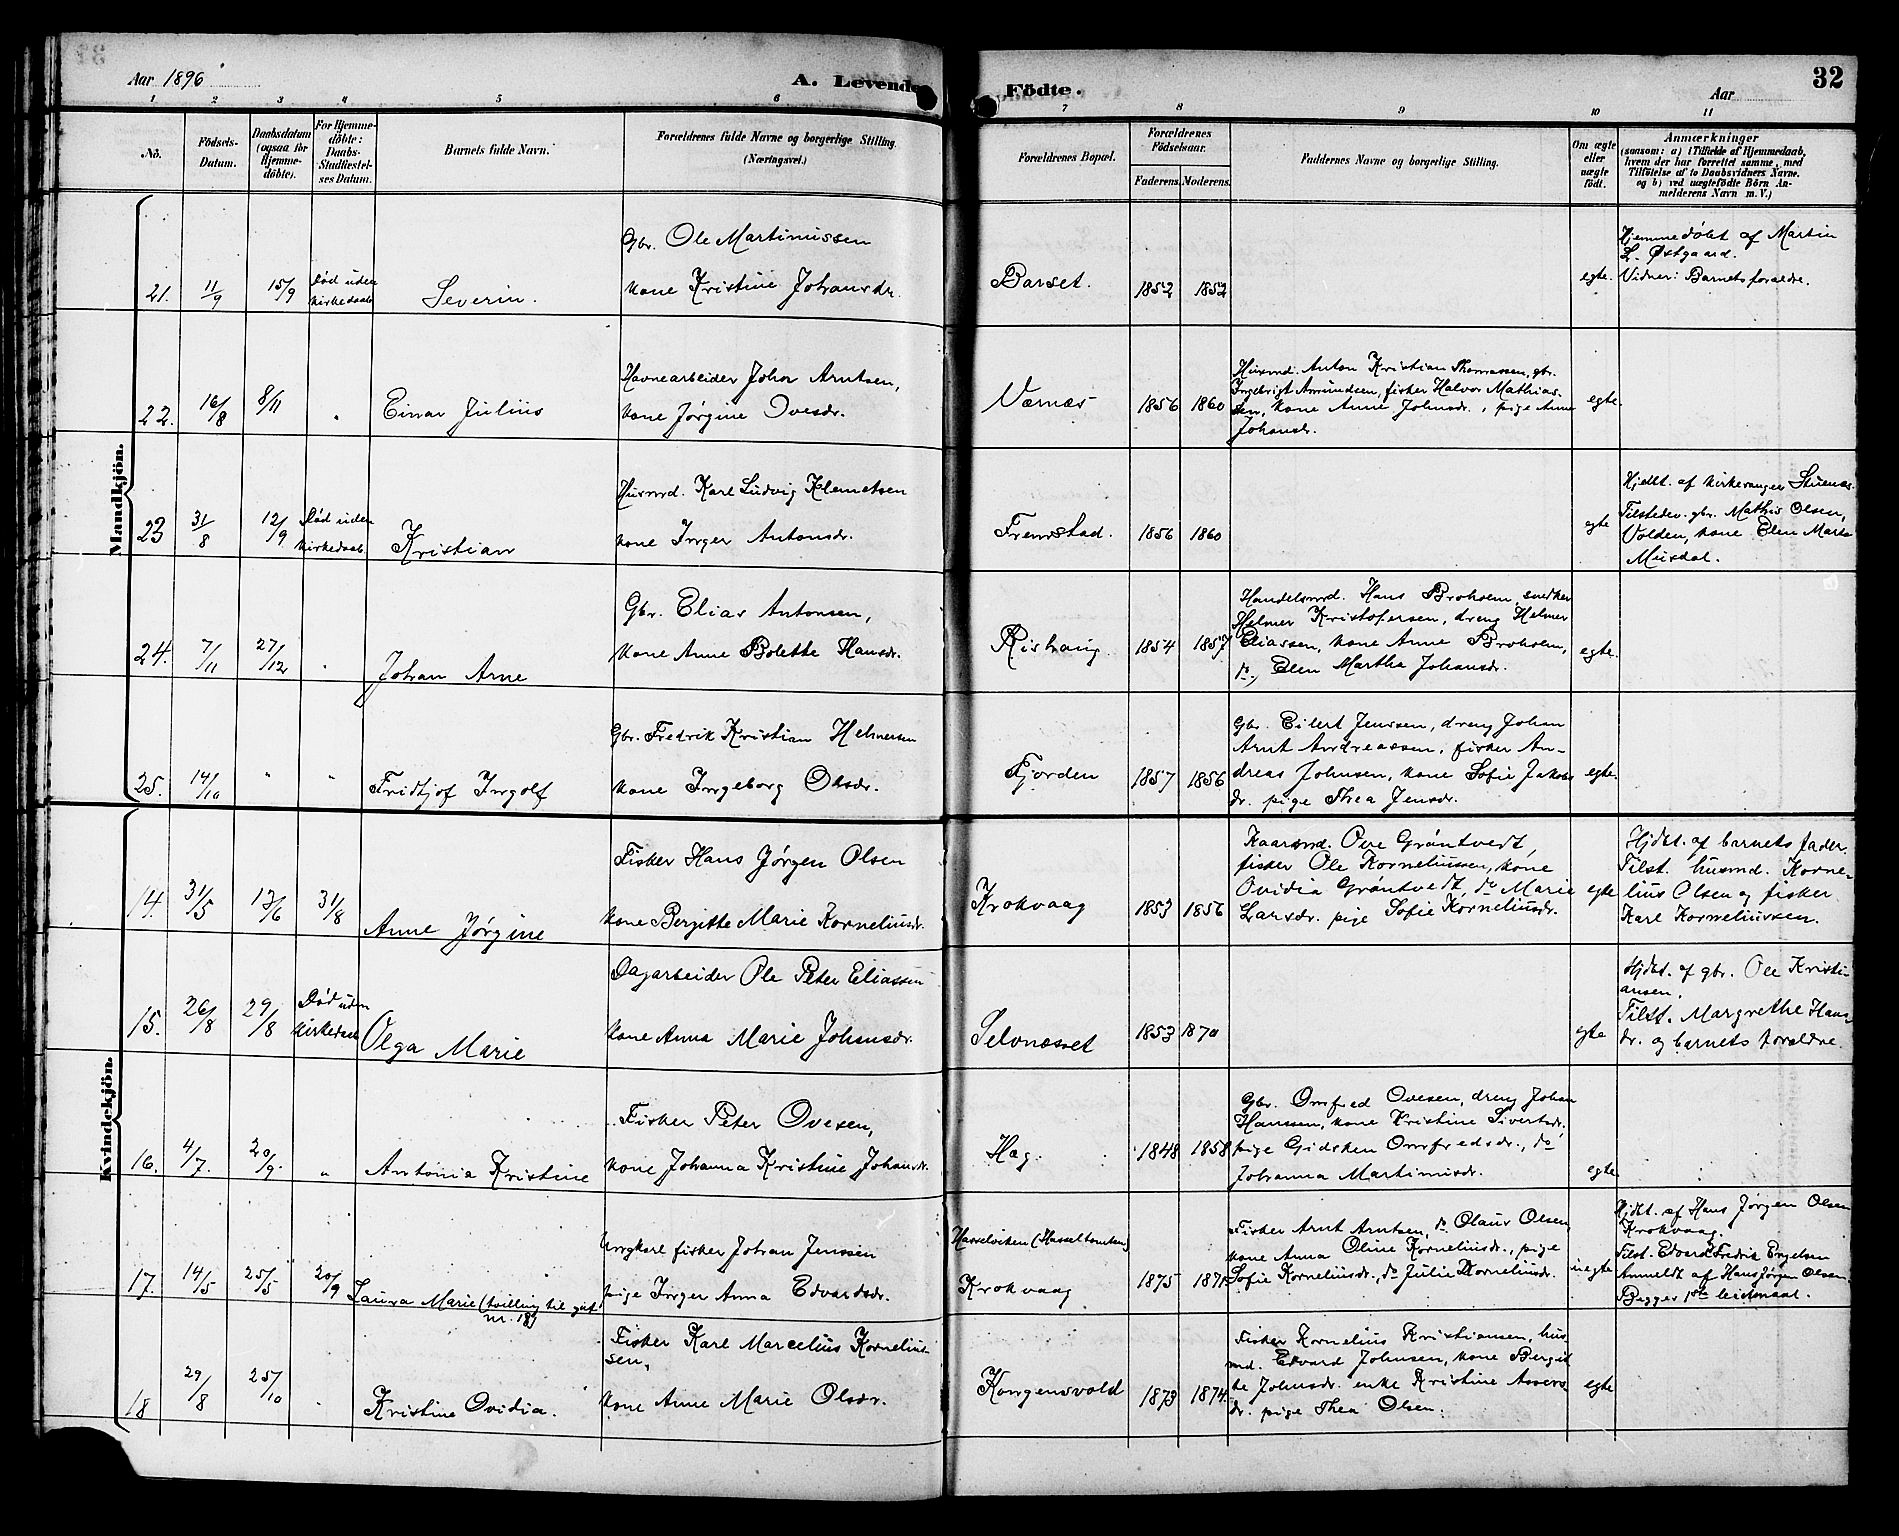 Aar 1896
A. Levende
Födte.
Aar
32
1 2 3 4 5 6 7 8 9 10 11
No.
Födsels-
Datum.
Daabsdatum
(ogsaa for
Hjemme-
döbte).
For Hjemme-
döbte:
Daabs-
Stadfæstel-
ses Datum.
Barnets fulde Navn.
Forældrenes fulde Navne og borgerlige Stilling.
(Næringsvei.)
Forældrenes Bopæl.
Forældrenes
Födselsaar.
Faderens. Moderens.
Faddernes Navne og borgerlige Stilling.
Om ægte
eller
uægte
födt.
Anmærkninger
(saasom: a) i Tilfælde af Hjemmedaab,
hvem der har forrettet samme, med
Tilföielse af to Daabsvidners Navne.
og b) ved uægtefödte Börn An-
melderens Navn m. V.)
Mandkjön.
21. 11/9 15/9 Død uden
kirkedaab
Severin.
Gbr. Ole Martinussen
kone Kristine Johansdr.
Barset. 1852 1852
egte.
Hjemmedøbt af Martin
L. Østgaard.
Vidner: Barnets forældre.
22. 16/8 8/11 "
Einar Julius
Havnearbeider Johan Arntsen,
kone Jørgine Ovesdr.
Værnæs 1856 1860
Husmd. Anton Kristian Thomassen, gbr.
Ingebrigt Amundsen, fisker Halvor Mathias-
sen, kone Anne Johnsdr., pige Anne
Johansdr.
egte.
23 31/8 12/9 Død uden
kirkedaab.
Kristian
Husmd. Karl Ludvig Klemetsen
kone Inger Antonsdr.
Fremstad. 1856 1860
egte
Hjdbt. af kirkesanger Stuenæs.
Tilstedev. gbr. Mathis Olsen,
Volden, kone Elen Marta
Musdal.
24. 7/11 27/12 "
Johan Arne
Gbr. Elias Antonsen,
kone Anne Bolette Hansdr.
Rishaug. 1854 1857
Handelsmd. Hans Broholm, snedker
Helmer Kristofersen, dreng Helmer
Eliassen, kone Anne Broholm,
do, Elen Martha Johansdr.
egte.
25. 14/10 " "
Fridtjof Ingolf
Gbr. Fredrik Kristian Helmersen
kone Ingeborg Olsdr.
Fjorden 1857 1856
Gbr. Eilert Jenssen, dreng Johan
Arnt Andreassen, fisker An-
dreas Johnsen, kone Sofie Jakobs
dr. pige Thea Jensdr.
egte.
Kvindekjön.
14. 31/5 13/6 31/8
Anne Jørgine
Fisker Hans Jørgen Olsen
kone Bergitte Marie Korneliusdr.
Krokvaag 1853 1856
Kaarmd. Ove Grøntvedt,
fisker Ole Korneliussen, kone
Ovidia Grøntvedt, do Marie
Larsdr. pige Sofie Korneliusdr.
egte
Hjdbt. af barnets fader.
Tilst. husmd. Korne-
lius Olsen og fisker
Karl Korneliussen.
15. 26/8 29/8 Død uden
kirkedaab
Olga Marie
Dagarbeider Ole Peter Eliassen
kone Anna Marie Johansdr.
Selvnæsset 1853 1870
egte
Hjdbt. af gbr. Ole Kristi-
ansen.
Tilst. Margrethe Hans
dr. og barnets forældre.
16. 4/7. 20/9. "
Antonia Kristine
Fisker Peter Ovesen,
kone Johanna Kristine Johansdr.
Hag. 1848 1858
Gbr. Omfred Ovesen, dreng Johan
Hanssen, kone Kristine Sivertsdr.
pige Gidsken Omfredsdr., do
Johanna Martinusdr.
egte
17. 14/5 25/5 20/9
Laura Marie (tvilling til gut
nr. 18)
Ungkarl fisker Johan Jenssen
pige Inger Anna Edvardsdr.
Hasselviken (Hasseltomten)
Krokvaag 1875 1871
Fisker Arnt Arntsen, do Olaus Olsen
kone Anna Oline Korneliusdr., pige
Sofie Korneliusdr., do Julie Korneliusdr.
uegte
Hjdbt. af Hans Jørgen Olsen
Krokvaag.
Tilst. Edvard Fredrik Engelsen
Anmeldt af Hans Jørgen Olsen.
Begges 1ste leiermaal.
18 29/8 25/10
Kristine Ovidia.
Fisker Karl Marcelius Kornelius-
sen,
kone Anne Marie Olsdr.
Kongensvold 1873 1874.
Fisker Kornelius Kristiansen, hus
md. Edvard Johnsen, kone Bergit
te Johnsdr. enke Kristine Assers
dr. pige Thea Olsen.
egte